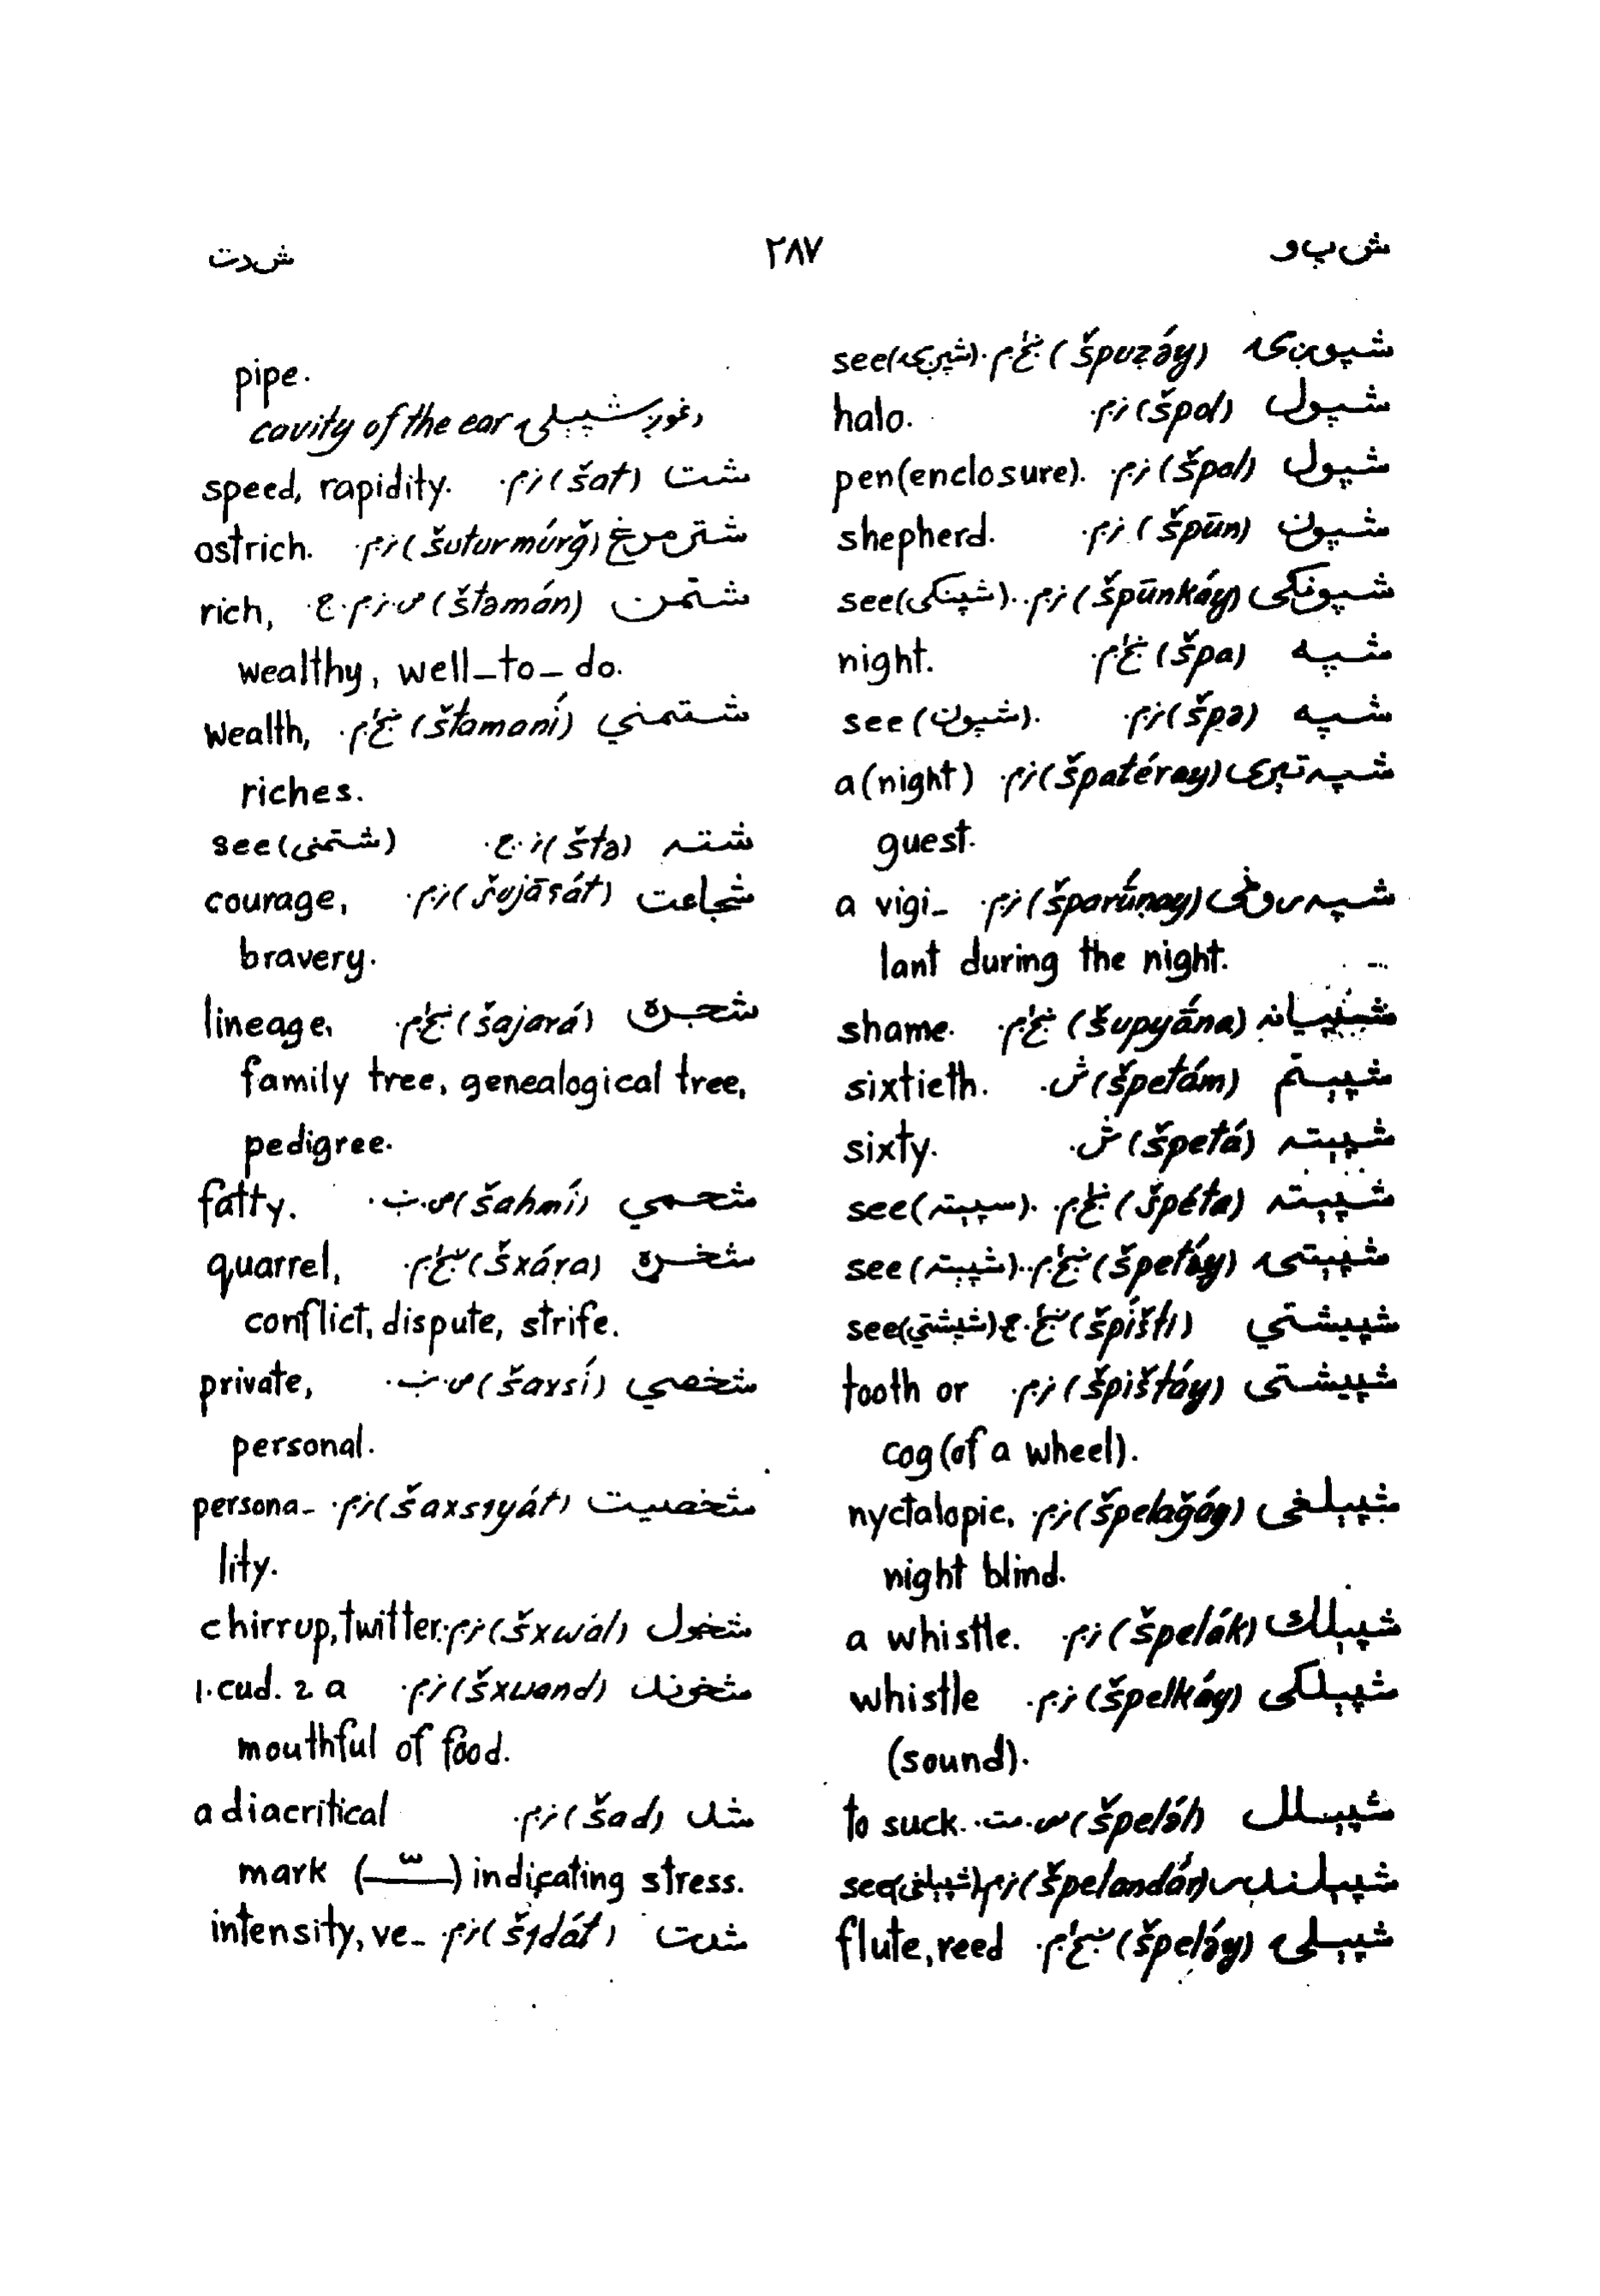 ش‌پ‌و ۲۸۷ ش‌دت
(špuẓə́y)
شپول (špol) ن.م. halo.
شپول (špol) ن.م. pen (enclosure).
شپون (špūn) ن.م. shepherd.
شپونکی (špūnkáy) ن.م. see (شپنکی).
شپه (špa) night.
شپه (špə) ن.م. see (شپون).
شپه تېری (špatéray) ن.م. a (night)
guest.
(šparū́ṇay) ن.م. a vigi-
lant during the night.
(šupyā́na) shame.
شپېتم (špetə́m) ش. sixtieth.
شپېته (špetə́) ش. sixty.
شپېته (špéta) see (سپېته).
شپېتۍ (špetə́y) see (شپېته).
شپیشتي (špíšti) see (شپشتي)
شپیشتی (špištáy) ن.م. tooth or
cog (of a wheel).
شپېلغی (špelağáy) ن.م. nyctalopic,
night blind.
شپېلک (špelák) ن.م. a whistle.
شپېلکی (špelkáy) ن.م. whistle
(sound).
شپېلل (špelə́l) to suck.
(špelandár) ن.م. see
شپېلۍ (špelə́y) flute, reed
pipe.
د غوږ شپېلۍ cavity of the ear
شت (šat) ن.م. speed, rapidity.
شترمرغ (šuturmúrğ) ن.م. ostrich.
شتمن (štəmán) ص. ن.م. ج. rich,
wealthy, well-to-do.
شتمني (štamaní) wealth,
riches.
شته (štə) ن.ج. see (شتمنی)
شجاعت ن.م. courage,
bravery.
شجره (šajará) lineage,
family tree, genealogical tree,
pedigree.
شحمي (šahmí) ص.ن. fatty.
شخړه (šxáṛa) quarrel,
conflict, dispute, strife.
شخصي (šaxsí) ص.ن. private,
personal.
شخصیت (šaxsıyát) ن.م. persona-
lity.
شخول (šxwál) ن.م. chirrup, twitter.
شخوند (šxwand) ن.م. 1. cud. 2 a
mouthful of food.
شد (šad) ن.م. a diacritical
mark (ـّـ) indicating stress.
شدت (šıdát) ن.م. intensity, ve-